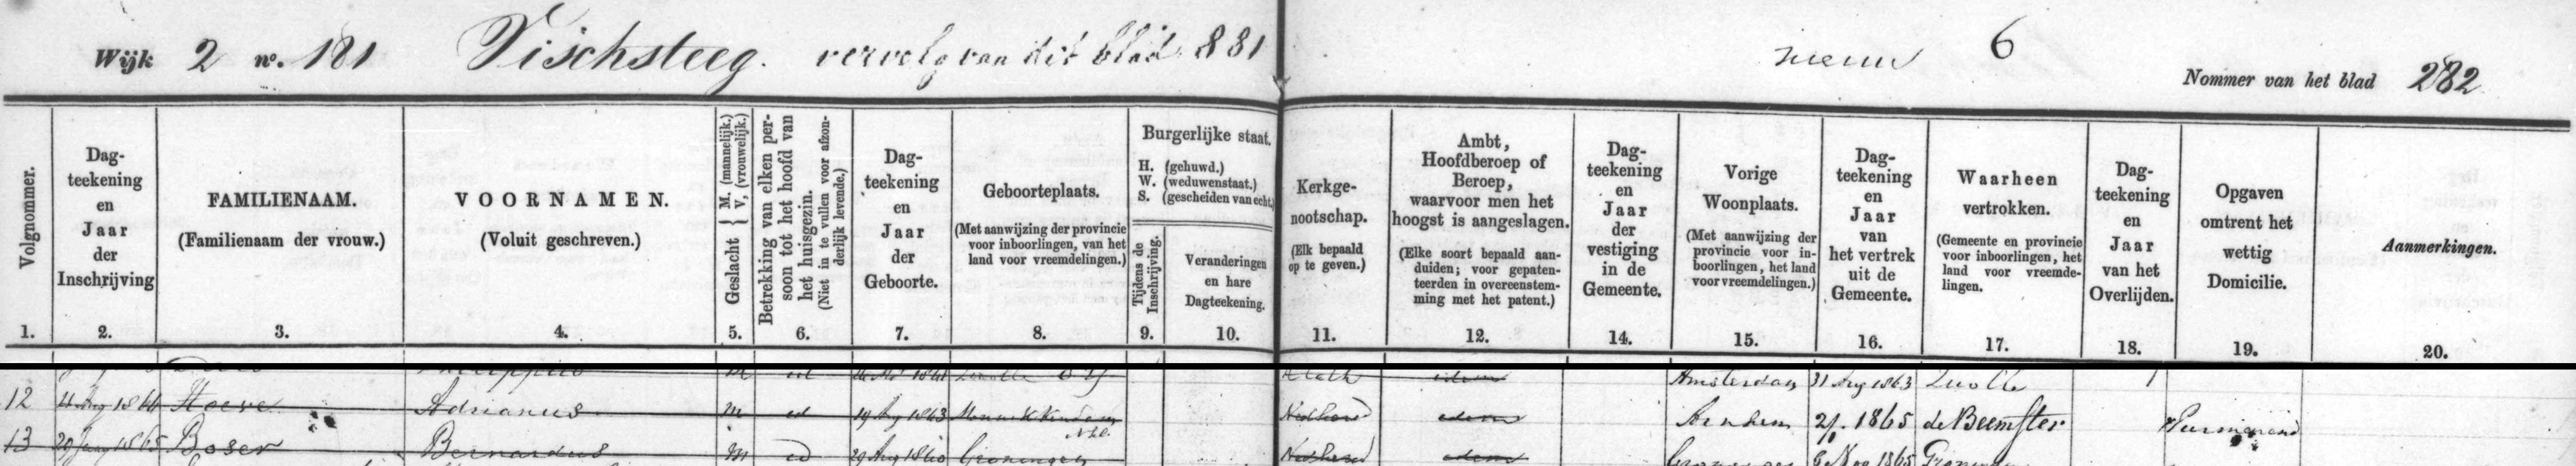 Wijk 2 no. 181 Vischsteeg. vervolg van dit blad 881 nieuw 6 Nommer van het blad 282
Volgnommer.
1.
Dag-
teekening
en
Jaar
der
Inschrijving
2.
FAMILIENAAM.
(Familienaam der vrouw.)
3.
VOORNAMEN.
(Voluit geschreven.)
4.
Geslacht { M. (mannelijk.)
V, (vrouwelijk.)
5.
Betrekking van elken per-
soon tot het hoofd van
het huisgezin.
(Niet in te vullen voor afzon-
derlijk levende.)
6.
Dag-
teekening
en
Jaar
der
Geboorte.
7.
Geboorteplaats.
(Met aanwijzing der provincie
voor inboorlingen, van het
land voor vreemdelingen.)
8.
Burgerlijke staat.
H. (gehuwd.)
W. (weduwenstaat.)
S. (gescheiden van echt.)
Tijdens de
Inschrijving.
9.
Veranderingen
en hare
Dagteekening.
10.
Kerkge-
nootschap.
(Elk bepaald
op te geven.)
11.
Ambt,
Hoofdberoep of
Beroep,
waarvoor men het
hoogst is aangeslagen.
(Elke soort bepaald aan-
duiden; voor gepaten-
teerden in overeenstem-
ming met het patent.)
12.
Dag-
teekening
en
Jaar
der
vestiging
in de
Gemeente.
14.
Vorige
Woonplaats.
(Met aanwijzing der
provincie voor in-
boorlingen, het land
voor vreemdelingen.)
15.
Dag-
teekening
en
Jaar
van
het vertrek
uit de
Gemeente.
16.
Waarheen
vertrokken.
(Gemeente en provincie
voor inboorlingen, het
land voor vreemde-
lingen.
17.
Dag-
teekening
en
Jaar
van het
Overlijden.
18.
Opgaven
omtrent het
wettig
Domicilie.
19.
Aanmerkingen.
20.
Amsterdam 31 Aug 1863 Zwolle
12 Aug 1864 Hoeve Adrianus M id 19 Aug 1843 Monnikendam Nedherv idem Arnhem 1865 de Beemster Purmerend
N.H.
13 20 1865 Boser Bernardus M id 29 Aug 1840 Groningen Nedherv idem 6 Nov 1865